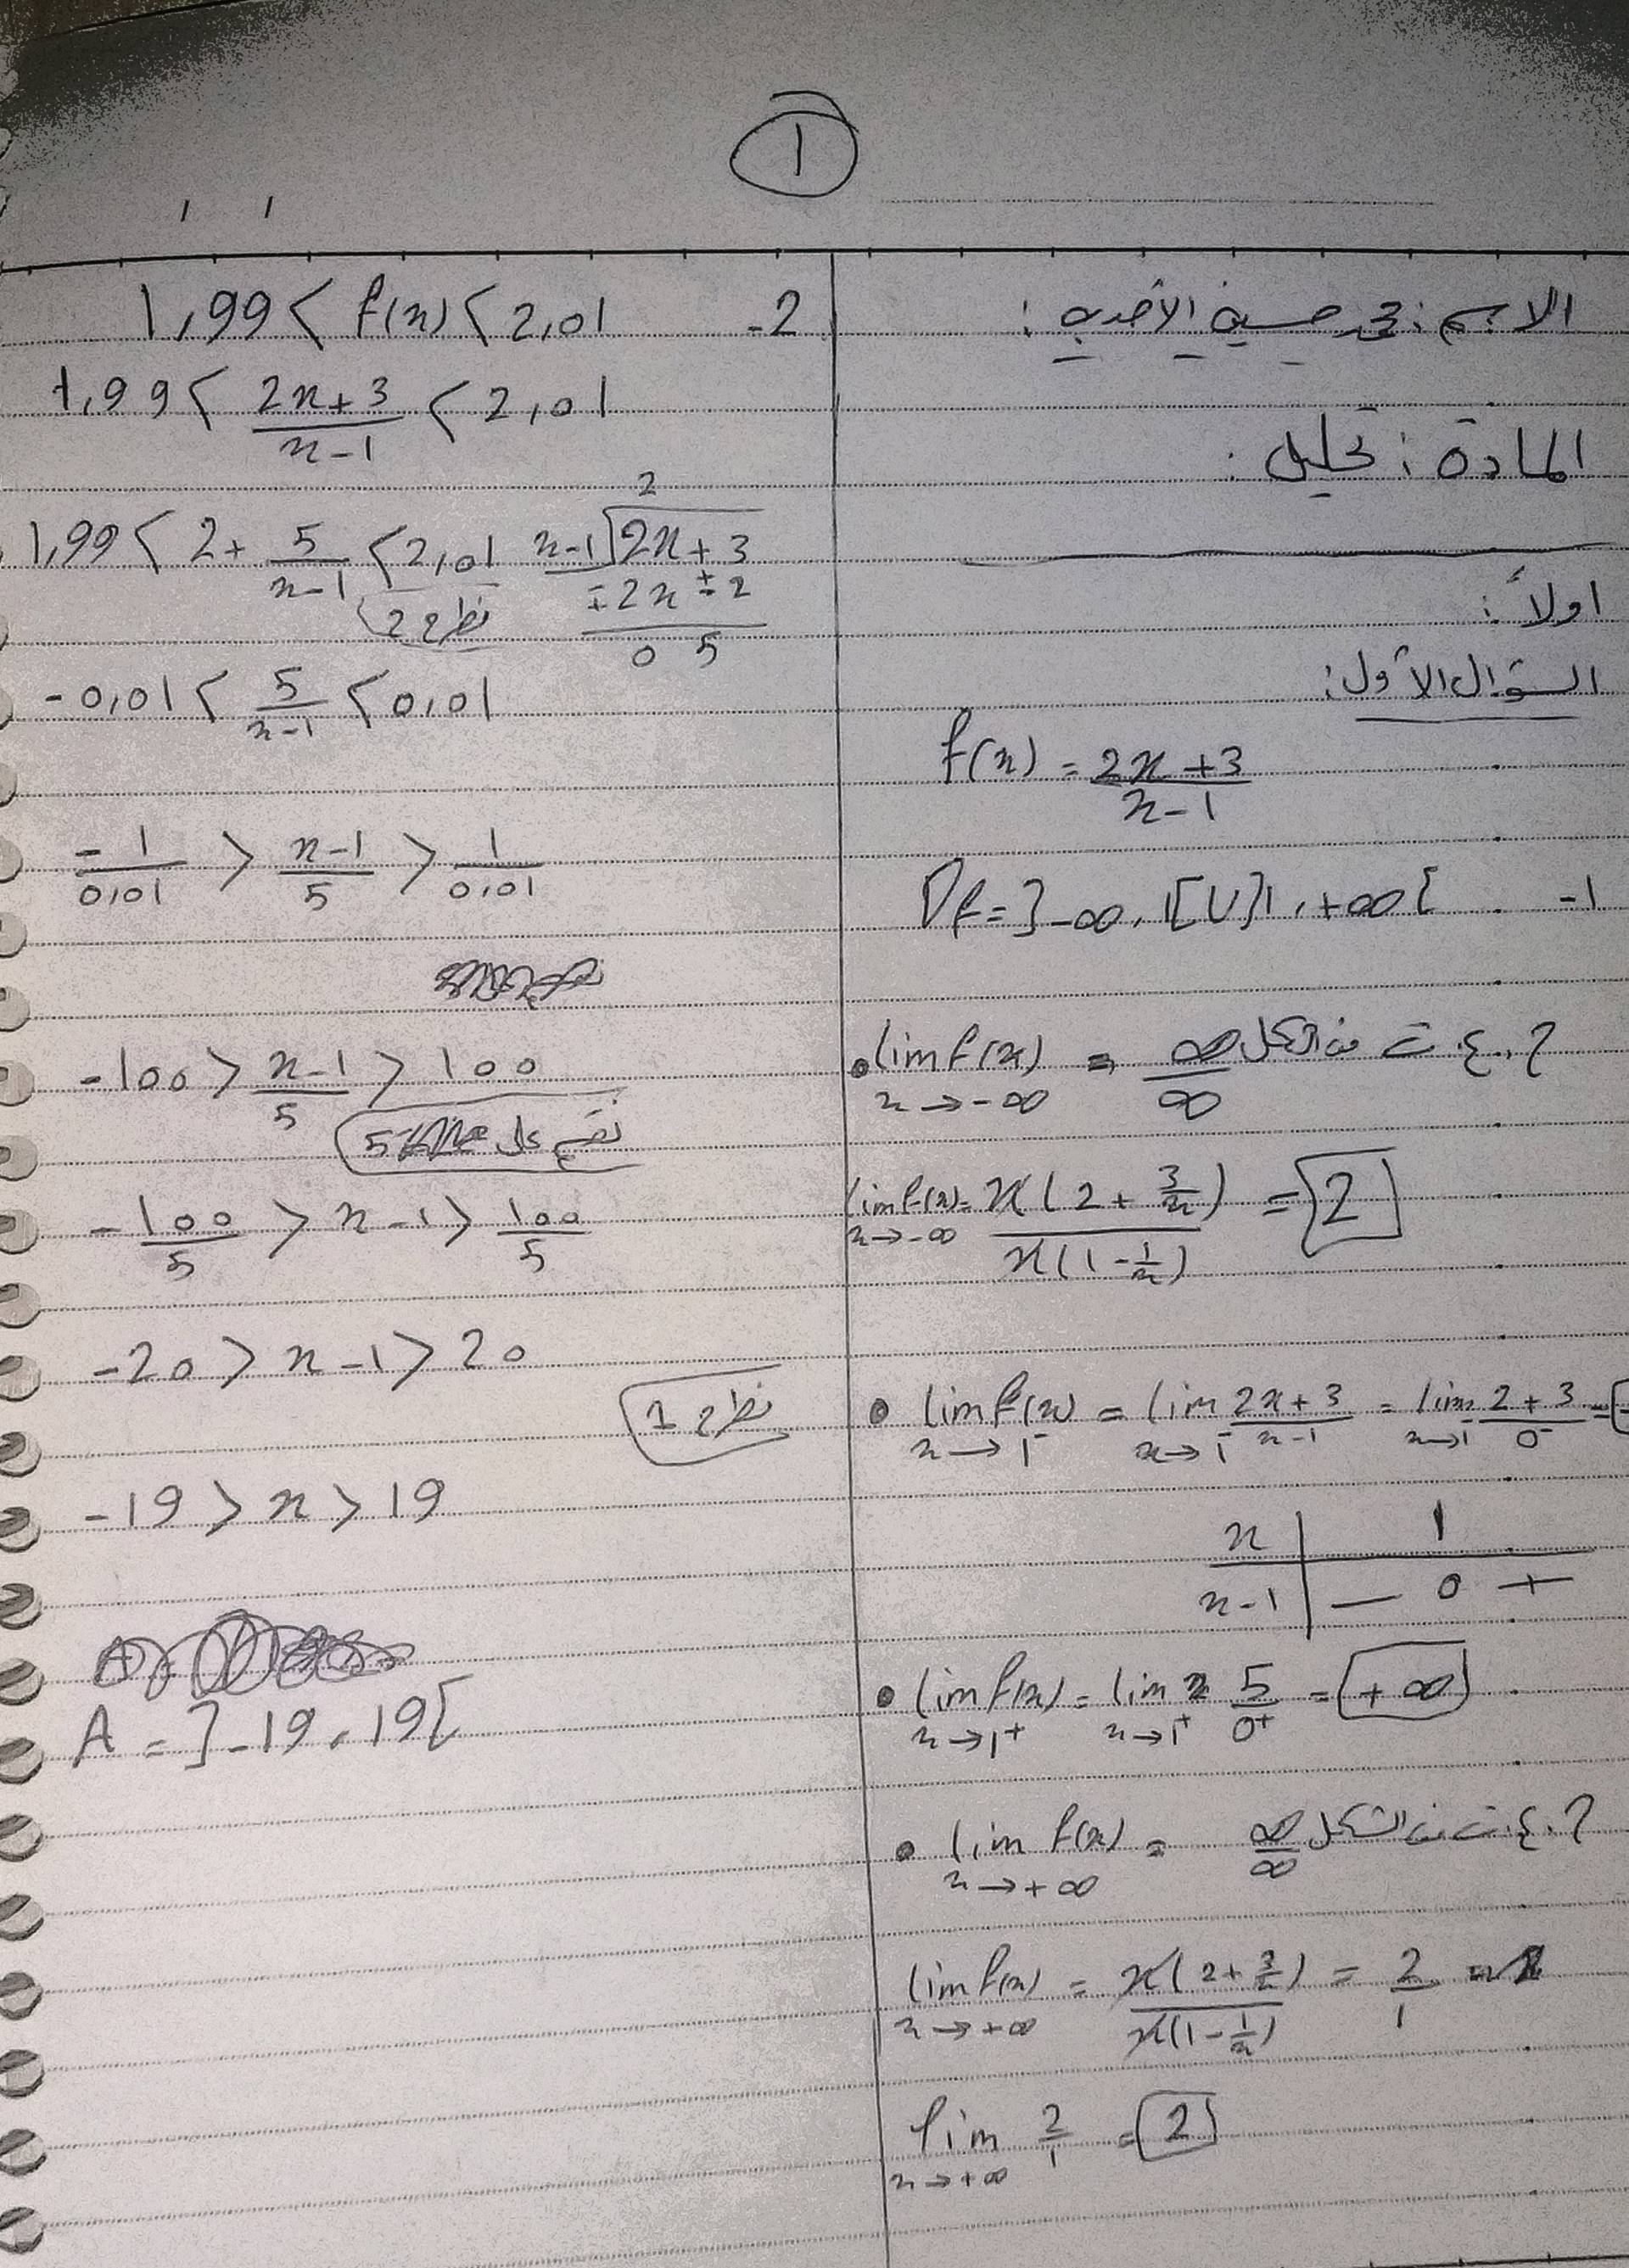 1
الاسم :
المادة : تحليل :
اولاً :
السؤال الأول :
f(x) = (2x+3)/(x-1)
1- Df = ]-∞, 1[ U ]1, +∞[
• lim f(x) x→-∞ = ح.ع.ت من الشكل ∞/∞
lim f(x) x→-∞ = x(2+3/x) / x(1-1/x) = 2
• lim f(x) x→1⁻ = lim x→1⁻ (2x+3)/(x-1) = lim x→1⁻ (2+3)/0⁻ =
x | 1
x-1 | — 0 +
• lim f(x) x→1⁺ = lim x→1⁺ 5/0⁺ = +∞
• lim f(x) x→+∞ = ح.ع.ت من الشكل ∞/∞
lim f(x) x→+∞ = x(2+3/x) / x(1-1/x) = 2/1
lim x→+∞ 2/1 = 2
2- 1,99 < f(x) < 2,01
1,99 < (2x+3)/(x-1) < 2,01
1,99 < 2 + 5/(x-1) < 2,01
نطرح 2
2
x-1 2x+3
∓2x ± 2
0 5
-0,01 < 5/(x-1) < 0,01
-1/0,01 > (x-1)/5 > 1/0,01
-100 > (x-1)/5 > 100
على 5
-100/5 > x-1 > 100/5
-20 > x-1 > 20
نطرح 1
-19 > x > 19
A = ]-19, 19[